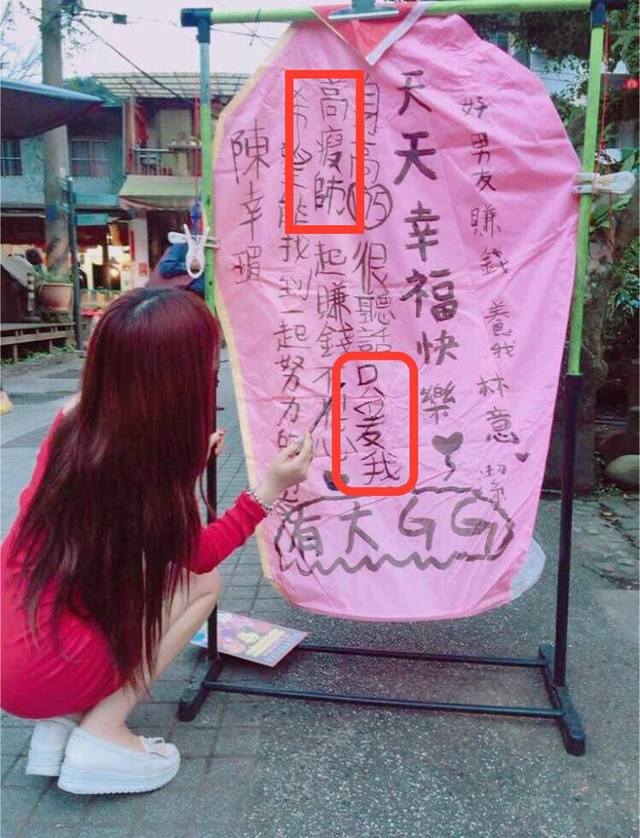 好男友賺錢養我 林意
天天幸福快樂
身高175很聽話只愛我
高瘦帥 起賺錢不 心
希望能找到一起努力的
陳幸
有大GG